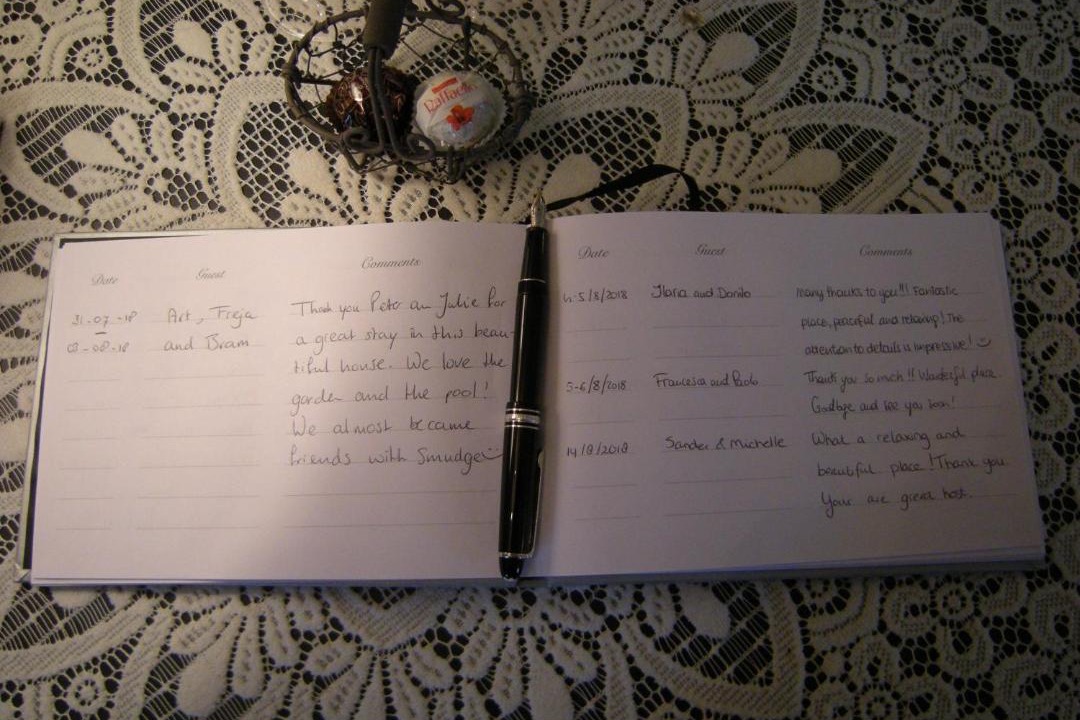 Raffaello
Date Guest Comments
31-07-18 Art, Freja Thank you Peter an Julie for
03-08-18 and Bram a great stay in this beau-
tiful house. We love the
garden and the pool!
We almost became
friends with Smudge
Date Guest Comments
4-5/8/2018 Ilaria and Danilo many thanks to you!!! Fantastic
place, peaceful and relaxing! The
attention to details is impressive!
5-6/8/2018 Francesca and Paolo Thank you so much!! Wonderful place
Goodbye and see you soon!
14/8/2018 Sander & Michelle What a relaxing and
beautiful place! Thank you
Your are great host.